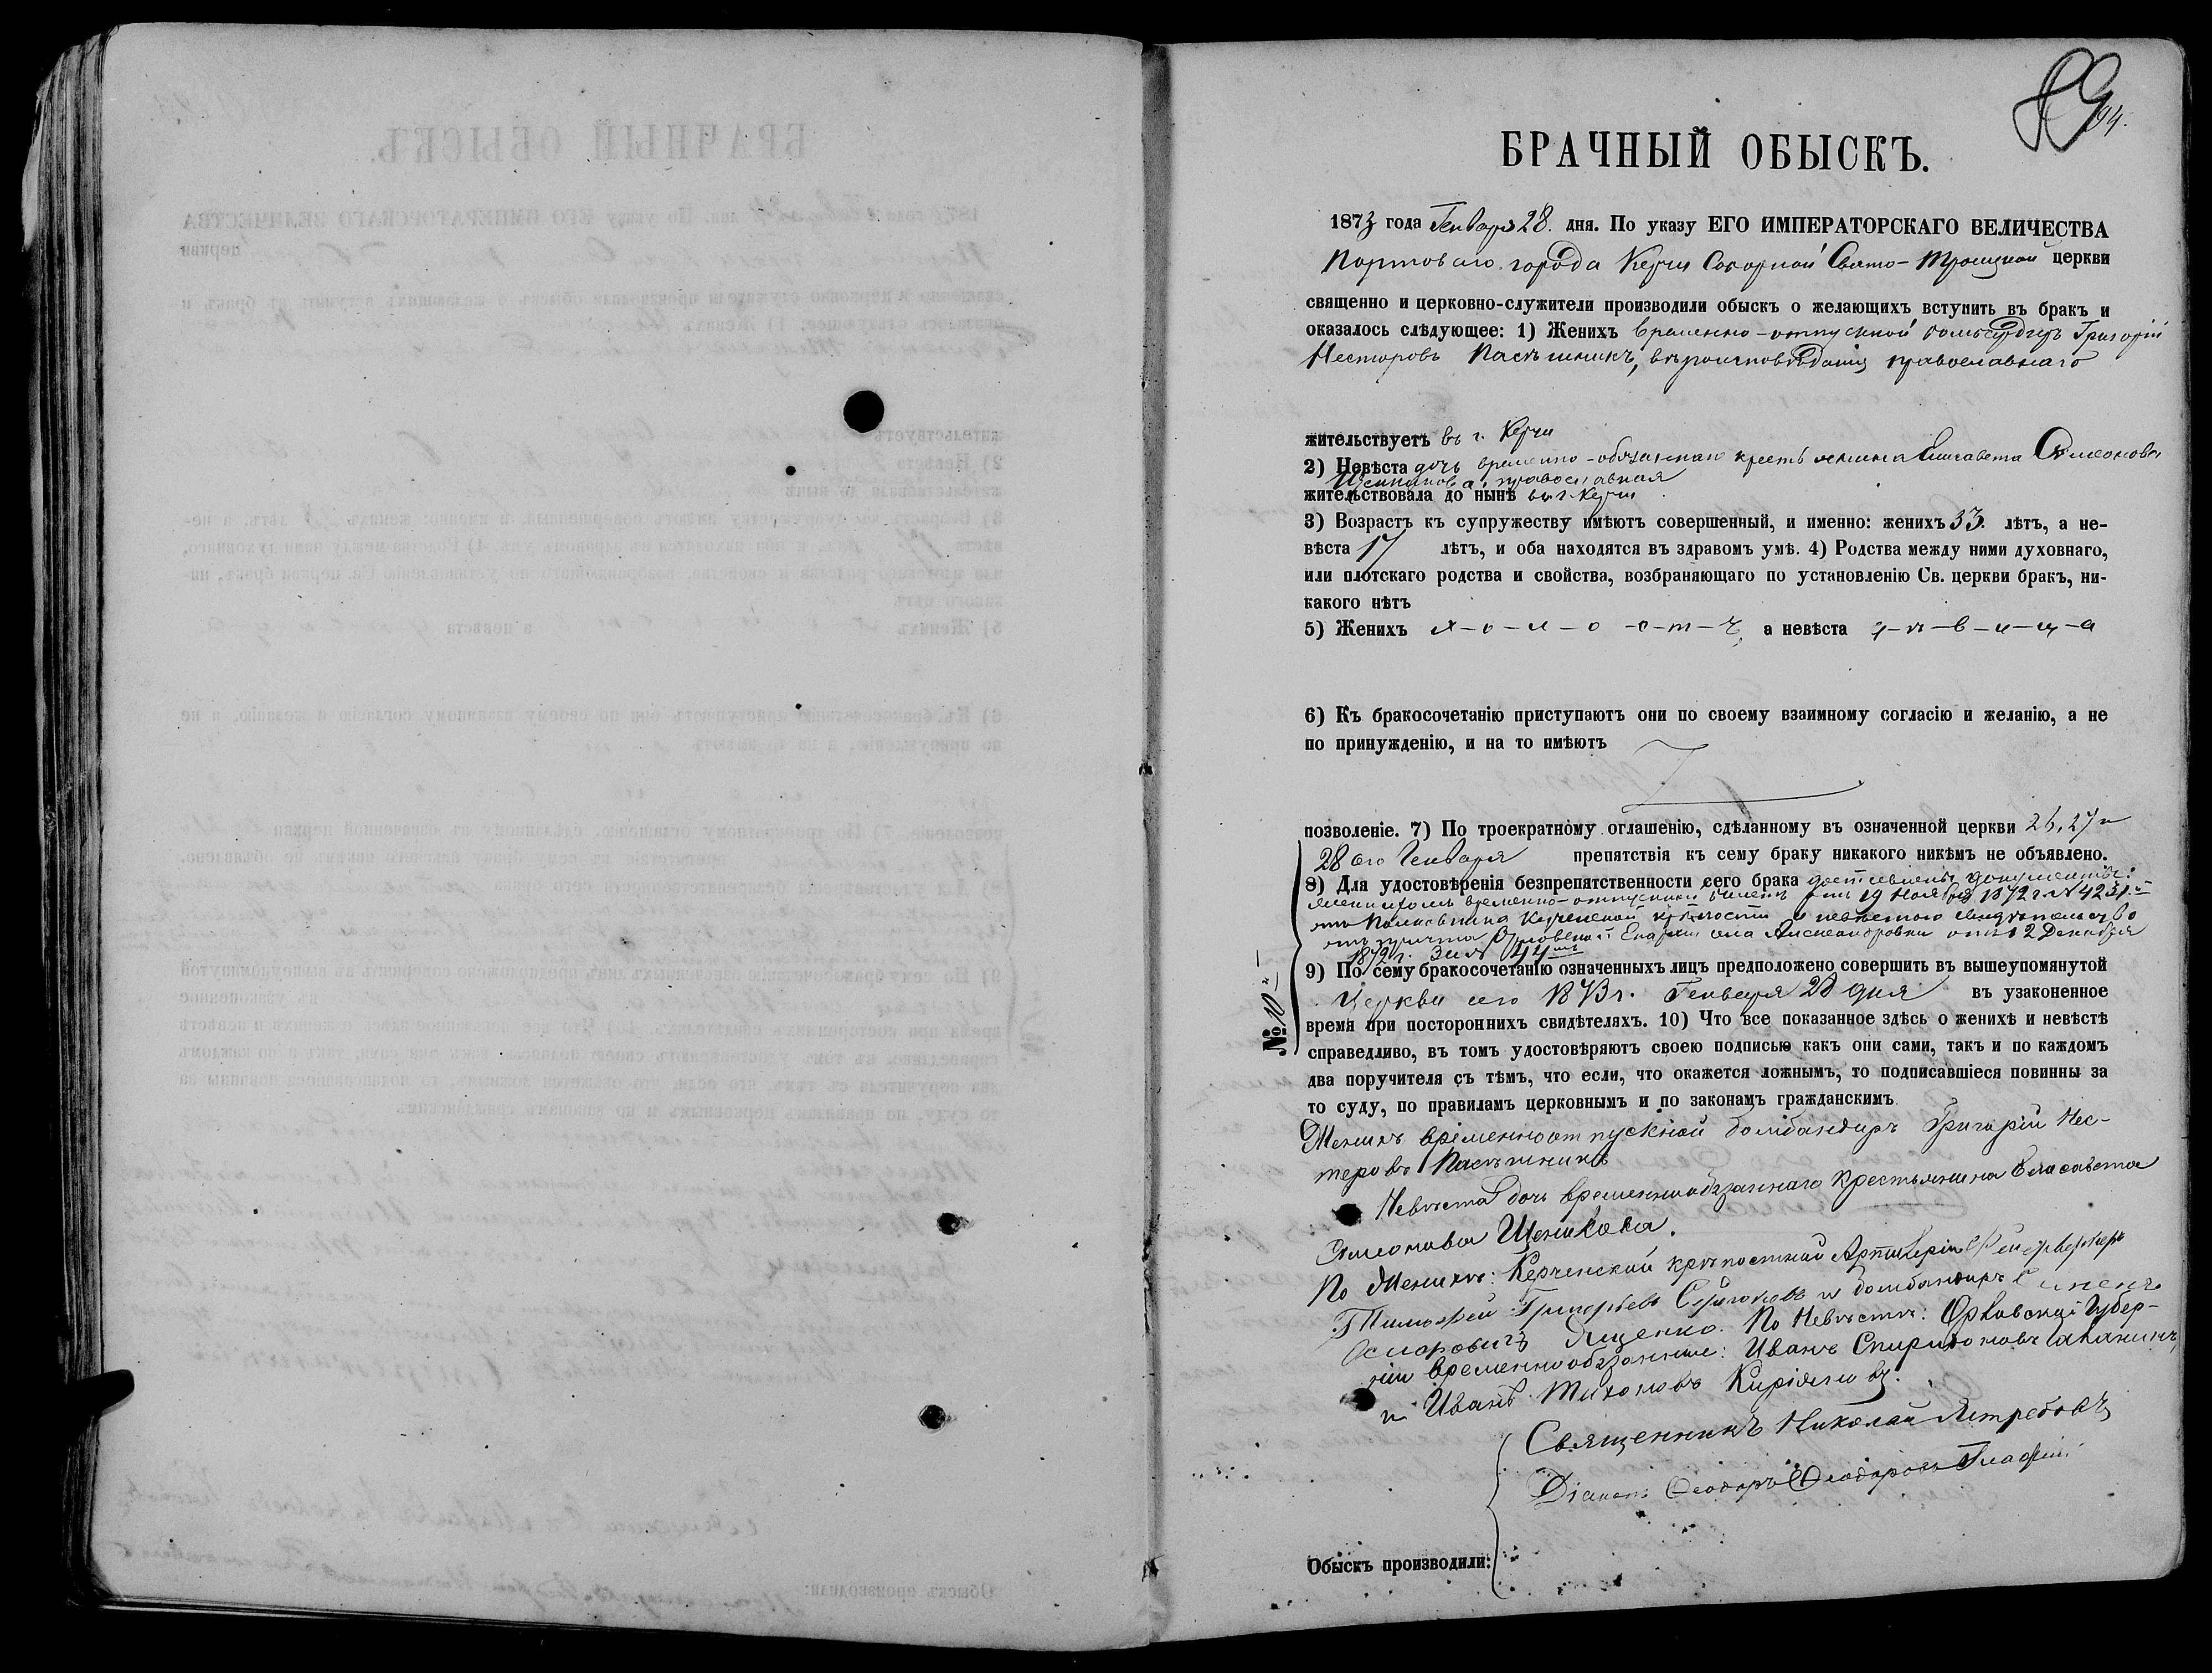 94.
БРАЧНЫЙ ОБЫСКЪ.
1873 года Генваря 28. дня. По указу ЕГО ИМПЕРАТОРСКАГО ВЕЛИЧЕСТВА
Портоваго города Керчи Соборной Свято-Троицкой церкви
священно и церковно-служители производили обыскъ о желающихъ вступить въ бракъ и
оказалось слѣдующее: 1) Женихъ временно-отпускной бомбардиръ Григорій
Несторовъ Пасѣшникъ, вѣроисповѣданія православнаго
жительствуетъ въ г. Керчи
2) Невѣста дочь временно-обязаннаго крестьянина Елисавета Симеонова
православная
жительствовала до нынѣ въ г. Керчи
3) Возрастъ къ супружеству имѣютъ совершенный, и именно: женихъ 33. лѣтъ, а не-
вѣста 17 лѣтъ, и оба находятся въ здравомъ умѣ. 4) Родства между ними духовнаго,
или плотскаго родства и свойства, возбраняющаго по установленію Св. церкви бракъ, ни-
какого нѣтъ
5) Женихъ х-о-л-о-с-т-ъ, а невѣста д-ѣ-в-и-ц-а
6) Къ бракосочетанію приступаютъ они по своему взаимному согласію и желанію, а не
по принужденію, и на то имѣютъ
позволеніе. 7) По троекратному оглашенію, сдѣланному въ означенной церкви 26, 27 и
28 его Генваря препятствія къ сему браку никакого никѣмъ не объявлено.
8) Для удостовѣренія безпрепятственности сего брака документы:
женихомъ временно-отпускной билетъ отъ 19 Ноября 1872 г. № 4231.й
отъ Керченской крѣпости и невѣстою свидѣтельство
отъ причта Орловской Епархіи села Александровки отъ 12 Декабря
1872 г. за № 44мъ
№ 10й
9) По сему бракосочетанію означенныхъ лицъ предположено совершить въ вышеупомянутой
церкви сего 1873 г. Генваря 28 дня въ узаконенное
время при постороннихъ свидѣтеляхъ. 10) Что все показанное здѣсь о женихѣ и невѣстѣ
справедливо, въ томъ удостовѣряютъ своею подписью какъ они сами, такъ и по каждомъ
два поручителя съ тѣмъ, что если, что окажется ложнымъ, то подписавшіеся повинны за
то суду, по правиламъ церковнымъ и по законамъ гражданскимъ
Женихъ временноотпускной бомбандиръ Григорій Нес-
теровъ Пасѣшникъ
Невѣста дочь временнообязаннаго крестьянина Елисавета
Симеонова Щеникова.
По Женихѣ: Керченской крѣпостной Артилеріи Феерверкеръ
Тимофей Григорьевъ и бомбандиръ Семенъ
Яценко. По Невѣстѣ: Орловской Губер-
ніи временнообязанные: Иванъ Спиридоновъ
и Иванъ Тихоновъ
Священникъ Николай Ястребовъ
Діаконъ Ѳеодоръ
Обыскъ производили: